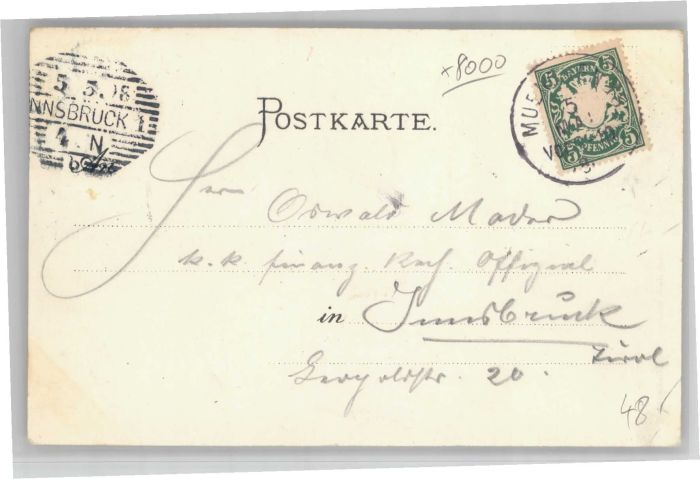 5. 5. 98
INNSBRUCK 1
4. N
+8000
BAYERN
5 5
5 5
PFENNIG
MUE
5
VO
POSTKARTE.
Herrn
Oswald Mader
k. k. finanz. Rech. Offizial
in Innsbruck
Tirol
Leopoldstr. 20.
48